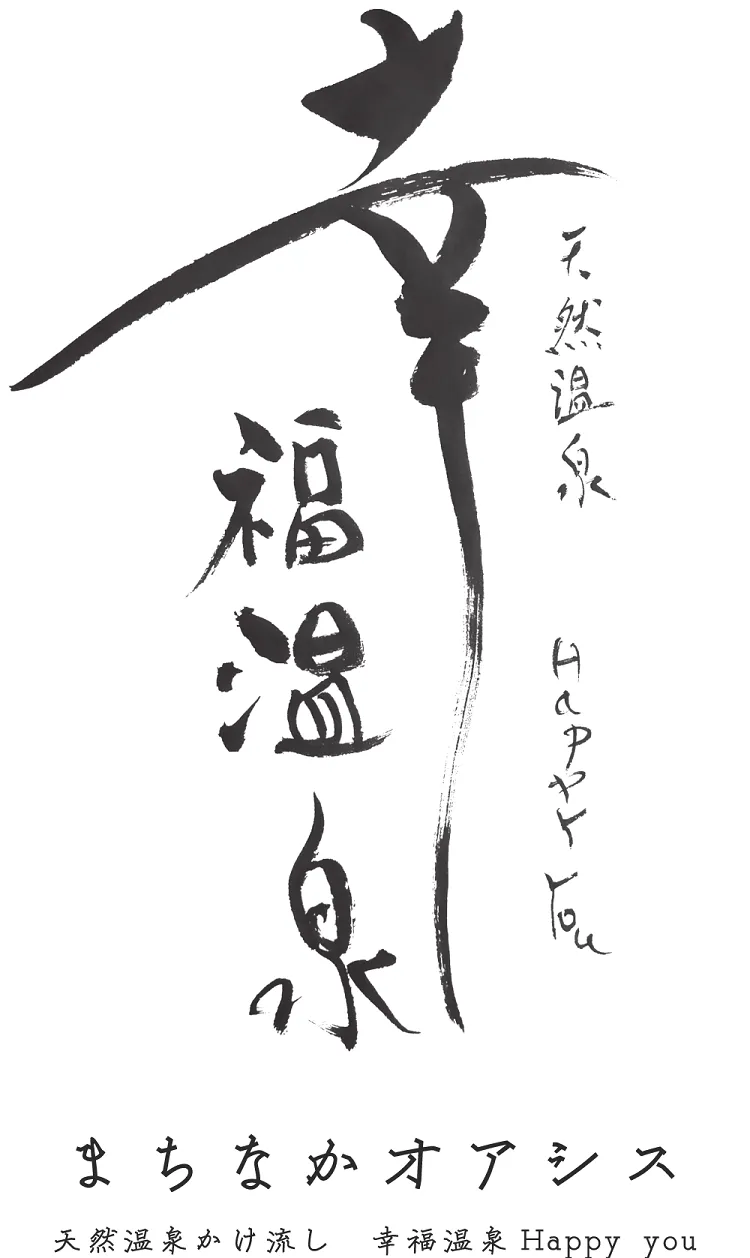 幸福温泉
天然温泉
Happy You
まちなかオアシス
天然温泉かけ流し 幸福温泉Happy you